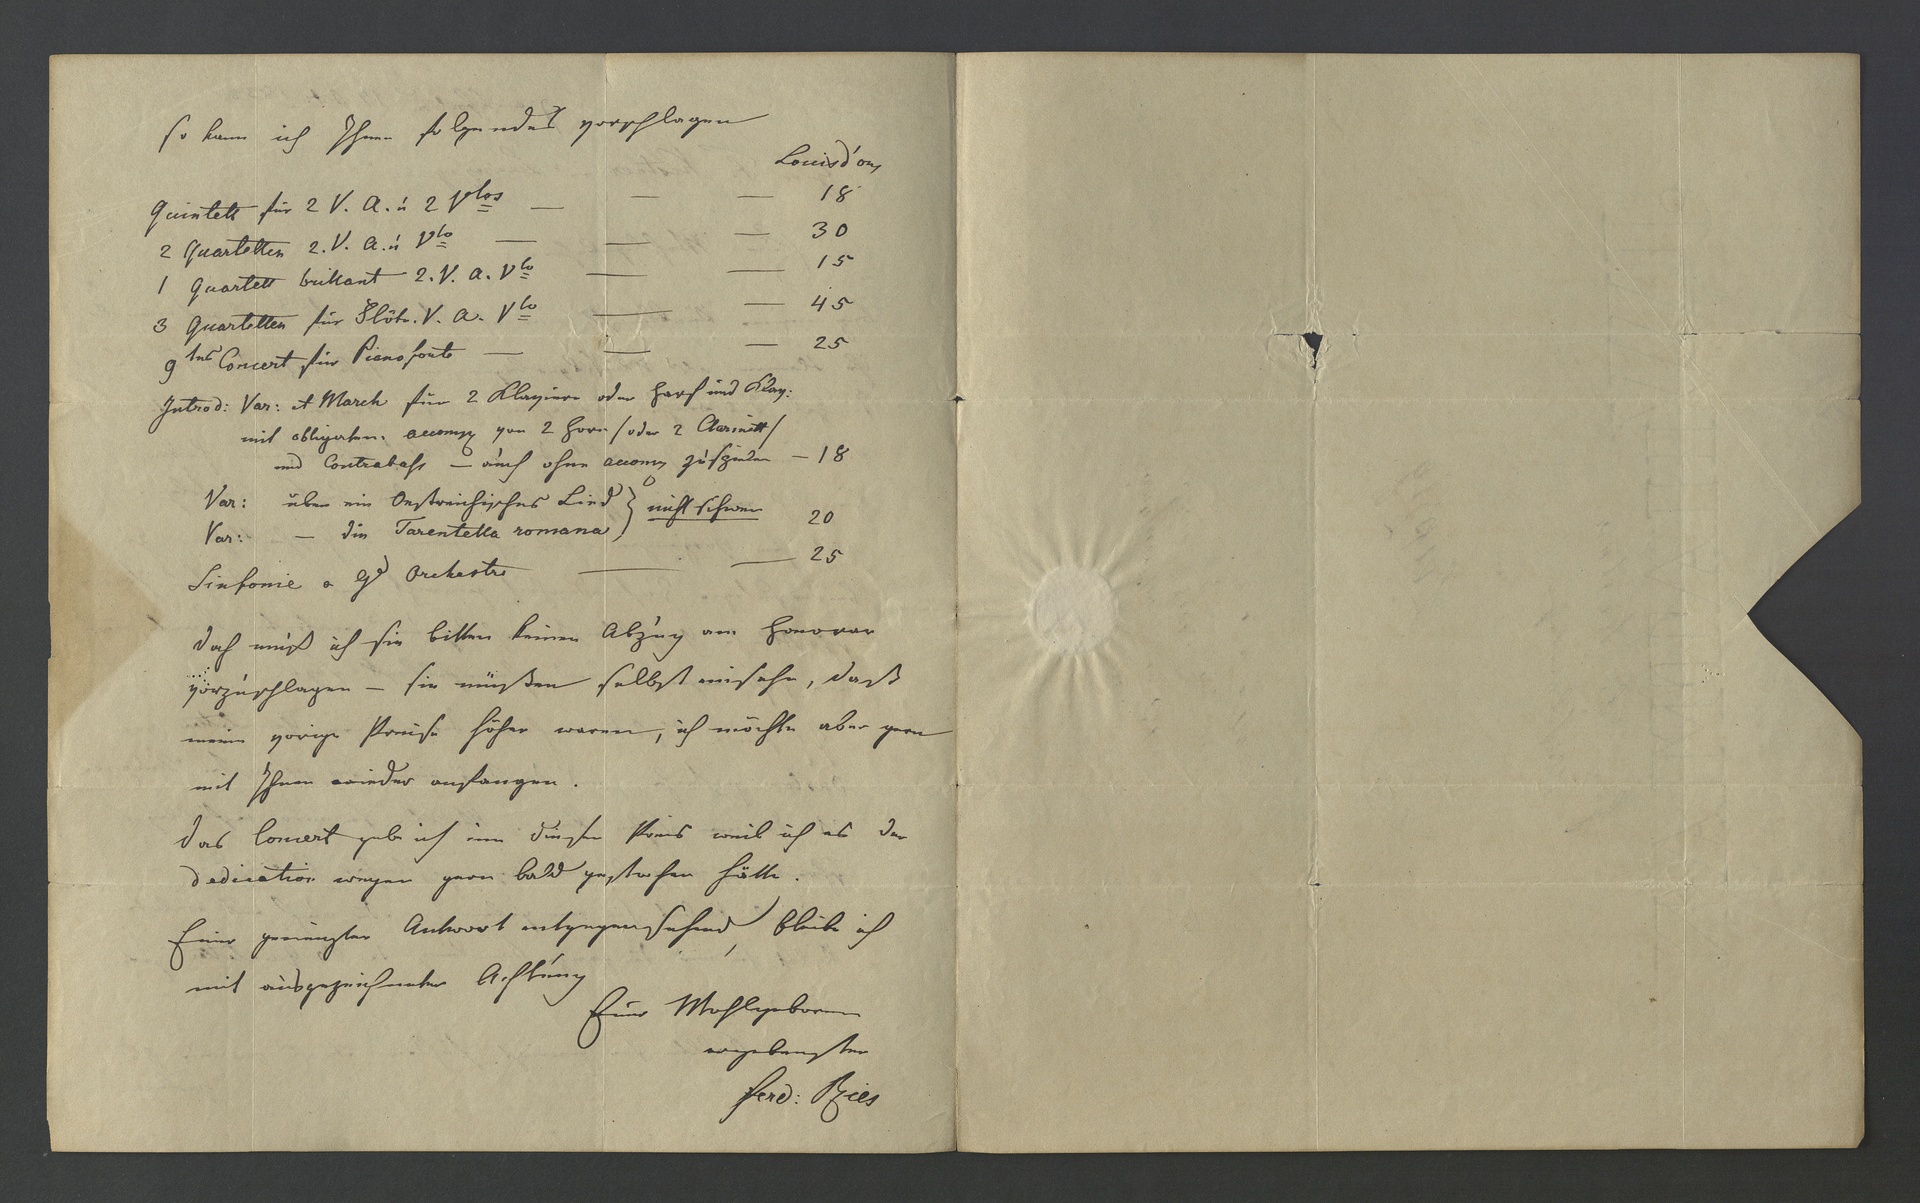 so kann ich Ihnen folgendes vorschlagen
Louisd'ors
Quintett für 2 V. A. u 2 Vlos — — — 18
2 Quartetten 2. V. A. u Vlo — — — 30
1 Quartett brillant 2. V. A. Vlo — — 15
3 Quartetten für Flöte. V. A. Vlo — — 45
9tes Concert für Pianoforte — — — 25
Introd: Var: et March für 2 Klaviere oder Harf und Klav:
mit obligaten accomp von 2 Horn /oder 2 Clarinett/
und Contrabass — auch ohne accomp zu spielen — 18
Var: über ein Oestreichisches Lied } nicht schwer
Var: — die Tarentella romana } 20
Sinfonie a gd Orchestre — — 25
doch muß ich sie bitten keinen Abzug am Honorar
vorzuschlagen — sie müßen selbst einsehn, daß
meine vorige Preise höher waren, ich möchte aber gern
mit Ihnen wieder anfangen.
das Concert gebe ich um diesen Preis weil ich es der
Dedication wegen gern bald gestochen hätte.
Einer geneigten Antwort entgegensehend, bleibe ich
mit ausgezeichneter Achtung
Euer Wohlgeboren
ergebenster
Ferd: Ries